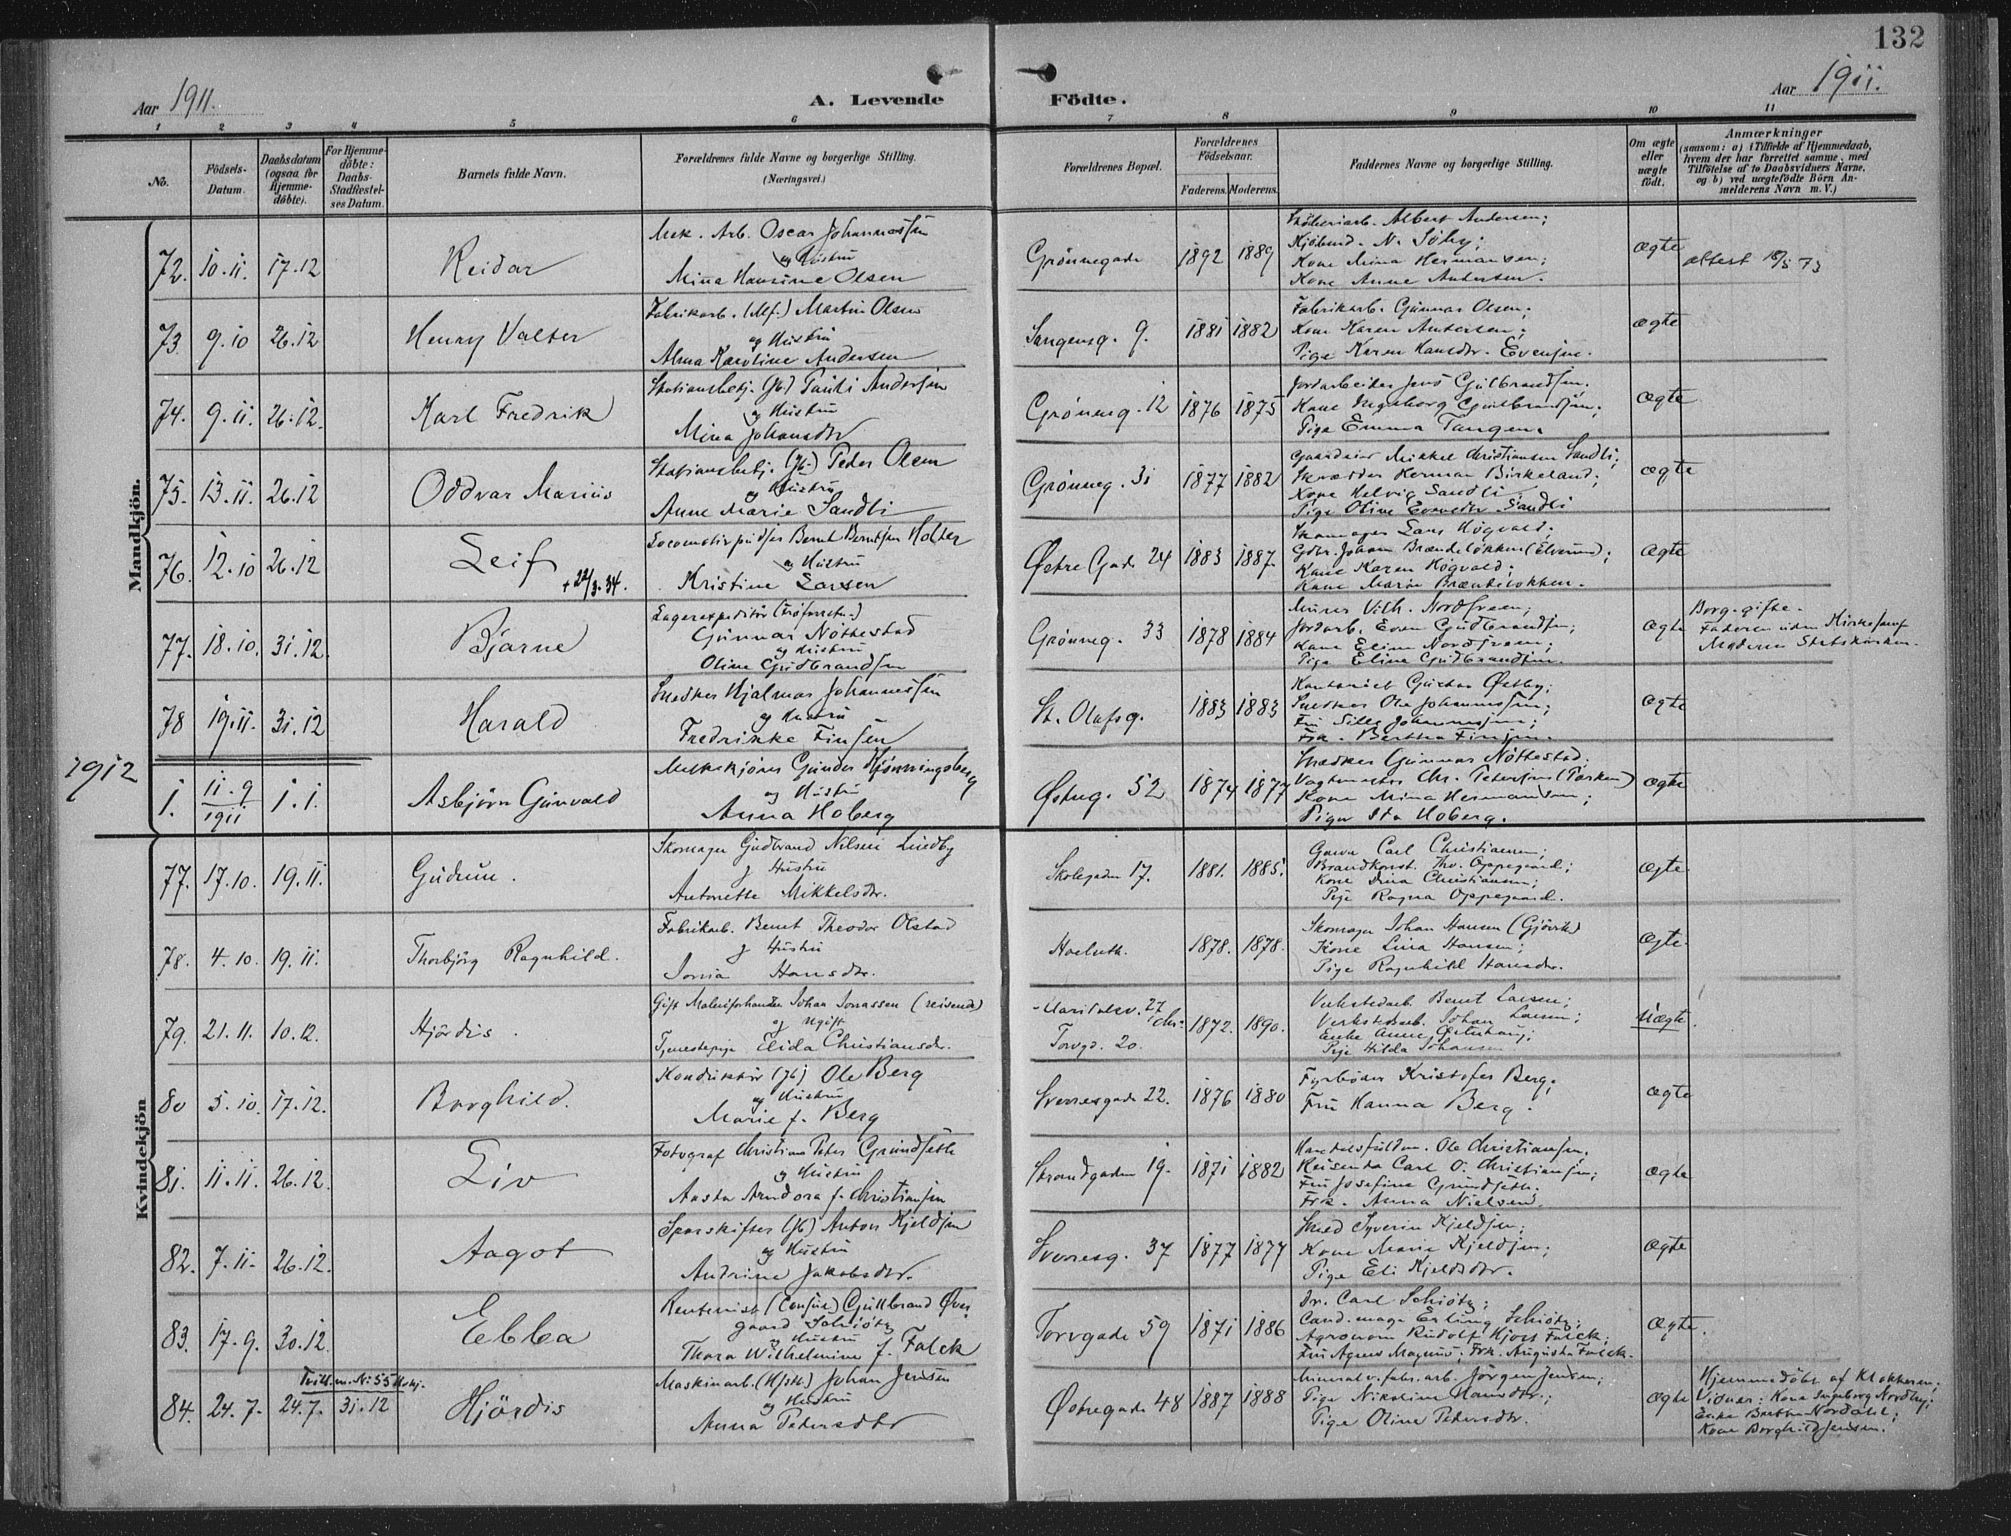 132
Aar 1911.
A. Levende Födte.
Aar 1911.
1 2 3 4 5 6 7 8 9 10 11
No.
Födsels-Datum.
Daabsdatum (ogsaa for Hjemme-döbte).
For Hjemme-döbte: Daabs-Stadfæstel-ses Datum.
Barnets fulde Navn.
Forældrenes fulde Navne og borgerlige Stilling. (Næringsvei.)
Forældrenes Bopæl.
Forældrenes Födselsaar.
Faderens. Moderens.
Faddernes Navne og borgerlige Stilling.
Om ægte eller uægte födt.
Anmærkninger
(saasom: a) i Tilfælde af Hjemmedaab,
hvem der har forrettet samme, med
Tilföielse af to Daabsvidners Navne,
og b) ved uægtefödte Börn An-
melderens Navn m. V.)
Mandkjön.
72. 10.11. 17.12 Reidar
Mek. Arb. Oscar Johannessen
og Hustru
Mina Hansine Olsen
Grønnegade 1892 1889
Albert Andersen;
Kjøbmd. N. Søby;
Kone Mina Hermansen;
Kone Anne Andersen.
ægte
attest 18/5 73
73. 9.10 26.12 Henry Valter
Fabrikarb. (Mf.) Martin Olsen
og Hustru
Alma Karoline Andersen
Vangensg. 9. 1881 1882
Fabrikarb. Gunnar Olsen;
Kone Karen Andersen;
Pige Karen Hansdtr. Evensen.
ægte
74. 9.11. 26.12. Karl Fredrik
Stationsbetj. (Jb.) Pauli Andersen
og Hustru
Mina Johansdtr
Grønneg. 12 1876 1875
Jordarbeider Jens Gulbrandsen;
Kone Ingeborg Gulbrandsen;
Pige Emma Tangen.
ægte
75. 13.11. 26.12 Oddvar Marius
Stationsbetj. (Jb.) Peder Olsen
og Hustru
Anne Marie Sandli
Grønneg. 31 1877 1882
Gaardeier Mikkel Christiansen Sandli;
Skrædder Herman Birkeland;
Kone Helvig Sandli;
Pige Oline Evensdtr. Sandli
ægte
76. 12.10 26.12 Leif
+ 22/3-34.
Locomotivpudser Bernt Berntsen Holter
og Hustru
Kristine Larsen
Østre Gade 24 1883 1887.
Skomager Lars Høgvald;
Gdbr. Johan Brændeløkken (Elverum);
Kone Karen Høgvald;
Kone Marie Brændeløkken.
ægte
77. 18.10. 31.12. Bjarne
Lagerexpeditør
Gunnar Nøttestad
og Hustru
Oline Gudbrandsen
Grønneg. 33 1878 1884
Murer Vilh. Nordsveen;
Jordarb. Even Gudbrandsen;
Kone Eline Nordsveen;
Pige Eline Gudbrandsen.
ægte
Borg. gifte.
Faderen uden Kirkesamf
Moderen Statskirken.
78 19.11. 31.12 Harald
Snedker Hjalmar Johannessen
og Hustru
Fredrikke Finsen
St. Olafsg. 1883 1883
Kontorist Gustav Østby;
Snedker Ole Johannessen;
Fru Sille Johannessen;
Fru Bertha Finsen.
ægte
1912
1. 11.9 1911 1.1. Asbjørn Gunvald
Melkekjører Gunder Hønningsberg
og Hustru
Anna Hoberg
Østreg. 52 1874 1877
Snedker Gunnar Nøttestad;
Vagtmester Chr. Petersen (Parken)
Kone Mina Hermansen;
Pige Ida Hoberg.
ægte
Kvindekjön
77. 17.10. 19.11. Gudrun.
Skomager Gudbrand Nilsen Lundby
og Hustru
Antonette Mikkelsdtr.
Skolegaden 17. 1881. 1885.
Garver Carl Christiansen;
Brandkonst. Thv. Oppegaard;
Kone Dina Christiansen;
Pige Ragna Oppegaard.
ægte
78. 4.10. 19.11. Thorbjörg Ragnhild.
Fabrikarb. Bernt Theodor Olstad
og Hustru
Jonia Hansdtr.
1878. 1878.
Skomager Johan Hansen (Gjøvik)
Kone Lina Hansen;
Pige Ragnhild Hansdtr.
ægte.
79. 21.11. 10.12. Hjördis.
Gift Maleriforhandler Johan Jonassen (reisende)
og Ugift
Tjenestepige Elida Christiansdtr.
27
Torvgd. 20. 1872. 1890.
Verkstedarb. Bernt Larsen;
Verkstedarb. Johan Larsen;
Enke Anne Østerhaug;
Pige Hilda Johansen
uægte.
80 5.10. 17.12. Borghild.
Konduktør (Jb) Ole Berg
og Hustru
Marie f. Berg
Sverresgade 22. 1876 1880
Fyrbøder Kristofer Berg;
Fru Hanna Berg.
ægte
81. 11.11. 26.12. Liv
Fotograf Christian Peter Grundseth
og Hustru
Aasta Arndora f. Christiansen
Strandgaden 19. 1871 1882
Handelsfuldm. Ole Christiansen;
Reisende Carl O. Christiansen;
Fru Josefine Grundseth.
Frk. Anna Nielsen.
ægte
82. 7.11. 26.12. Aagot
Sporskifter (Jb) Anton Kjeldsen
og Hustru
Andrine Jakobsdtr.
Sverresg. 37 1877 1877
Smed Syverin Kjeldsen;
Kone Marie Kjeldsen;
Pige Eli Kjeldsdtr.
ægte
83. 17.9. 30.12. Ebba
Rentenist (Consul) Gullbrand Øver-
gaard Schiøtz
og Hustru
Thora Wilhelmine f. Falck
Torvgade 59 1871 1886
Dr. Carl Schiøtz;
Cand. mag. Erling Schiøtz;
Agronom Rudolf Hjort Falck;
Fru Agnes Magnus; Frk. Augusta Falck.
ægte.
Tvill. m. N: 55
84. 24.7. 24.7. 31.12 Hjördis
Maskinarb. Johan Jensen
og Hustru
Anna Pedersdtr
Østregade 48 1887 1888
Mineralv. fabr. arb. Jørgen Jensen;
Pige Nikoline Hansdtr.;
Pige Oline Pedersdtr.
ægte
Hjemmedøbt af Klokkeren;
Vidner: Kone Ingeborg Nordby;
Enke Berthe Nordahl;
Kone Borghild Jensen.